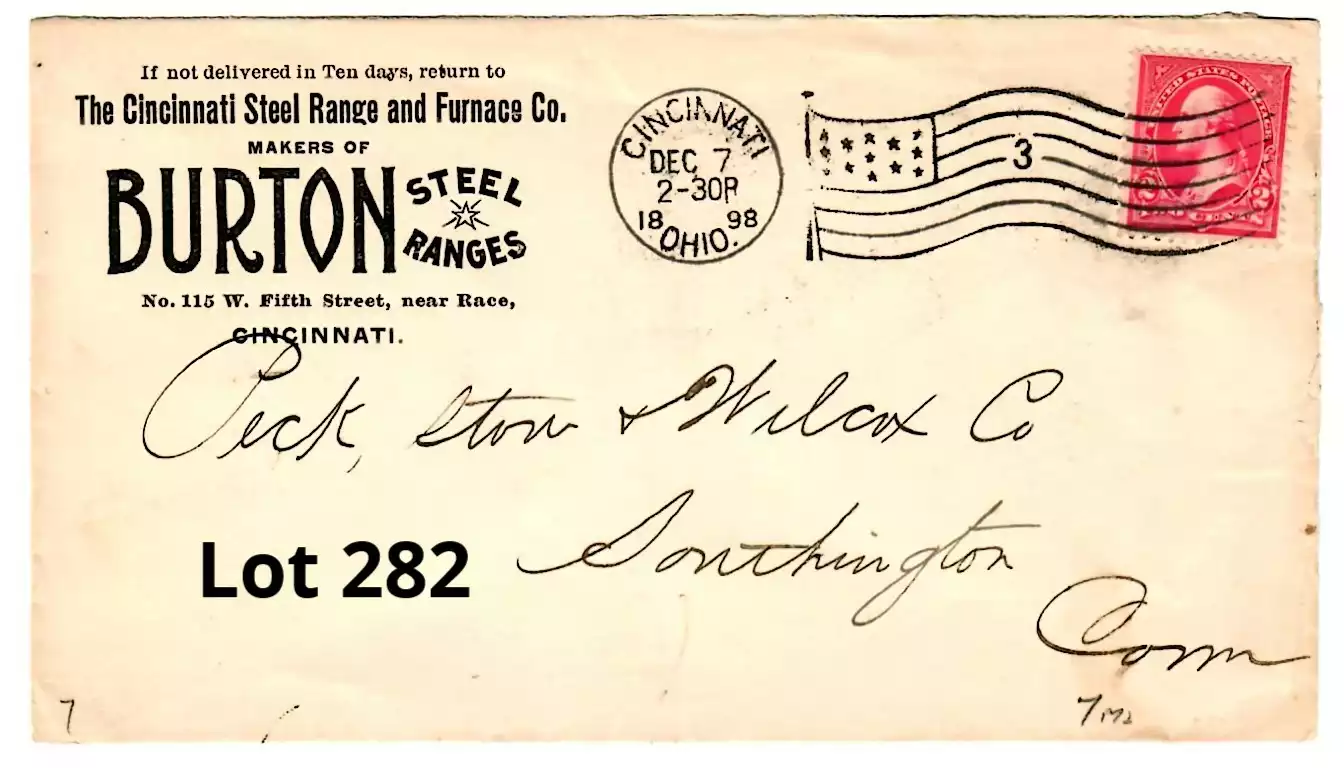 If not delivered in Ten days, return to
The Cincinnati Steel Range and Furnace Co.
MAKERS OF
BURTON STEEL RANGES
No. 115 W. Fifth Street, near Race,
CINCINNATI.
CINCINNATI
DEC 7
2-30P
18 98
OHIO.
3
UNITED STATES POSTAGE
2 TWO CENTS 2
Peck, Stow & Wilcox Co
Southington
Conn
Lot 282
7
7